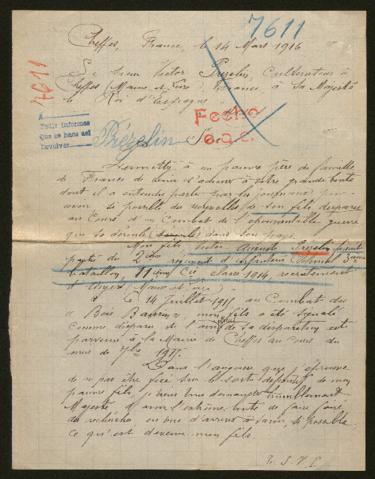 7611
Cheffes, France, le 14 Mars 1916
7611
Le Sieur Victor Prézelin, Cultivateur à
Cheffes (Maine et Loire), France, à Sa Majesté
le Roi d'Espagne
Fecho
Pedir informes
que se hace así
Prézelin
Sire
Permettez à un pauvre père de famille
de France de s'adresser à votre grande bonté
dont il a entendu parler par les journaux, pour
avoir si possible des nouvelles de son fils disparu
au cours d'un Combat de l'abominable guerre
que se déroule dans son pays.
Mon fils, Victor Auguste Prézelin faisait
partie du régiment d'infanterie Colonial, 3ème
bataillon, 11ème Cie, classe 1914, recrutement
d'Angers (Maine et Loire)
le 14 Juillet 1915 au Combat du
"Bois Baurain", mon fils a été signalé
comme disparu de sa disparition est
parvenu à la Mairie de Cheffes au cours du
mois de 7bre 1915.
Dans l'angoisse que j'éprouve
de ne pas être fixé sur le sort de mon
pauvre fils, je viens vous demander humblement
Majesté, de faire faire
des recherches en vue d'arriver à savoir, si possible,
ce qu'est devenu mon fils.
T. S. V. P.